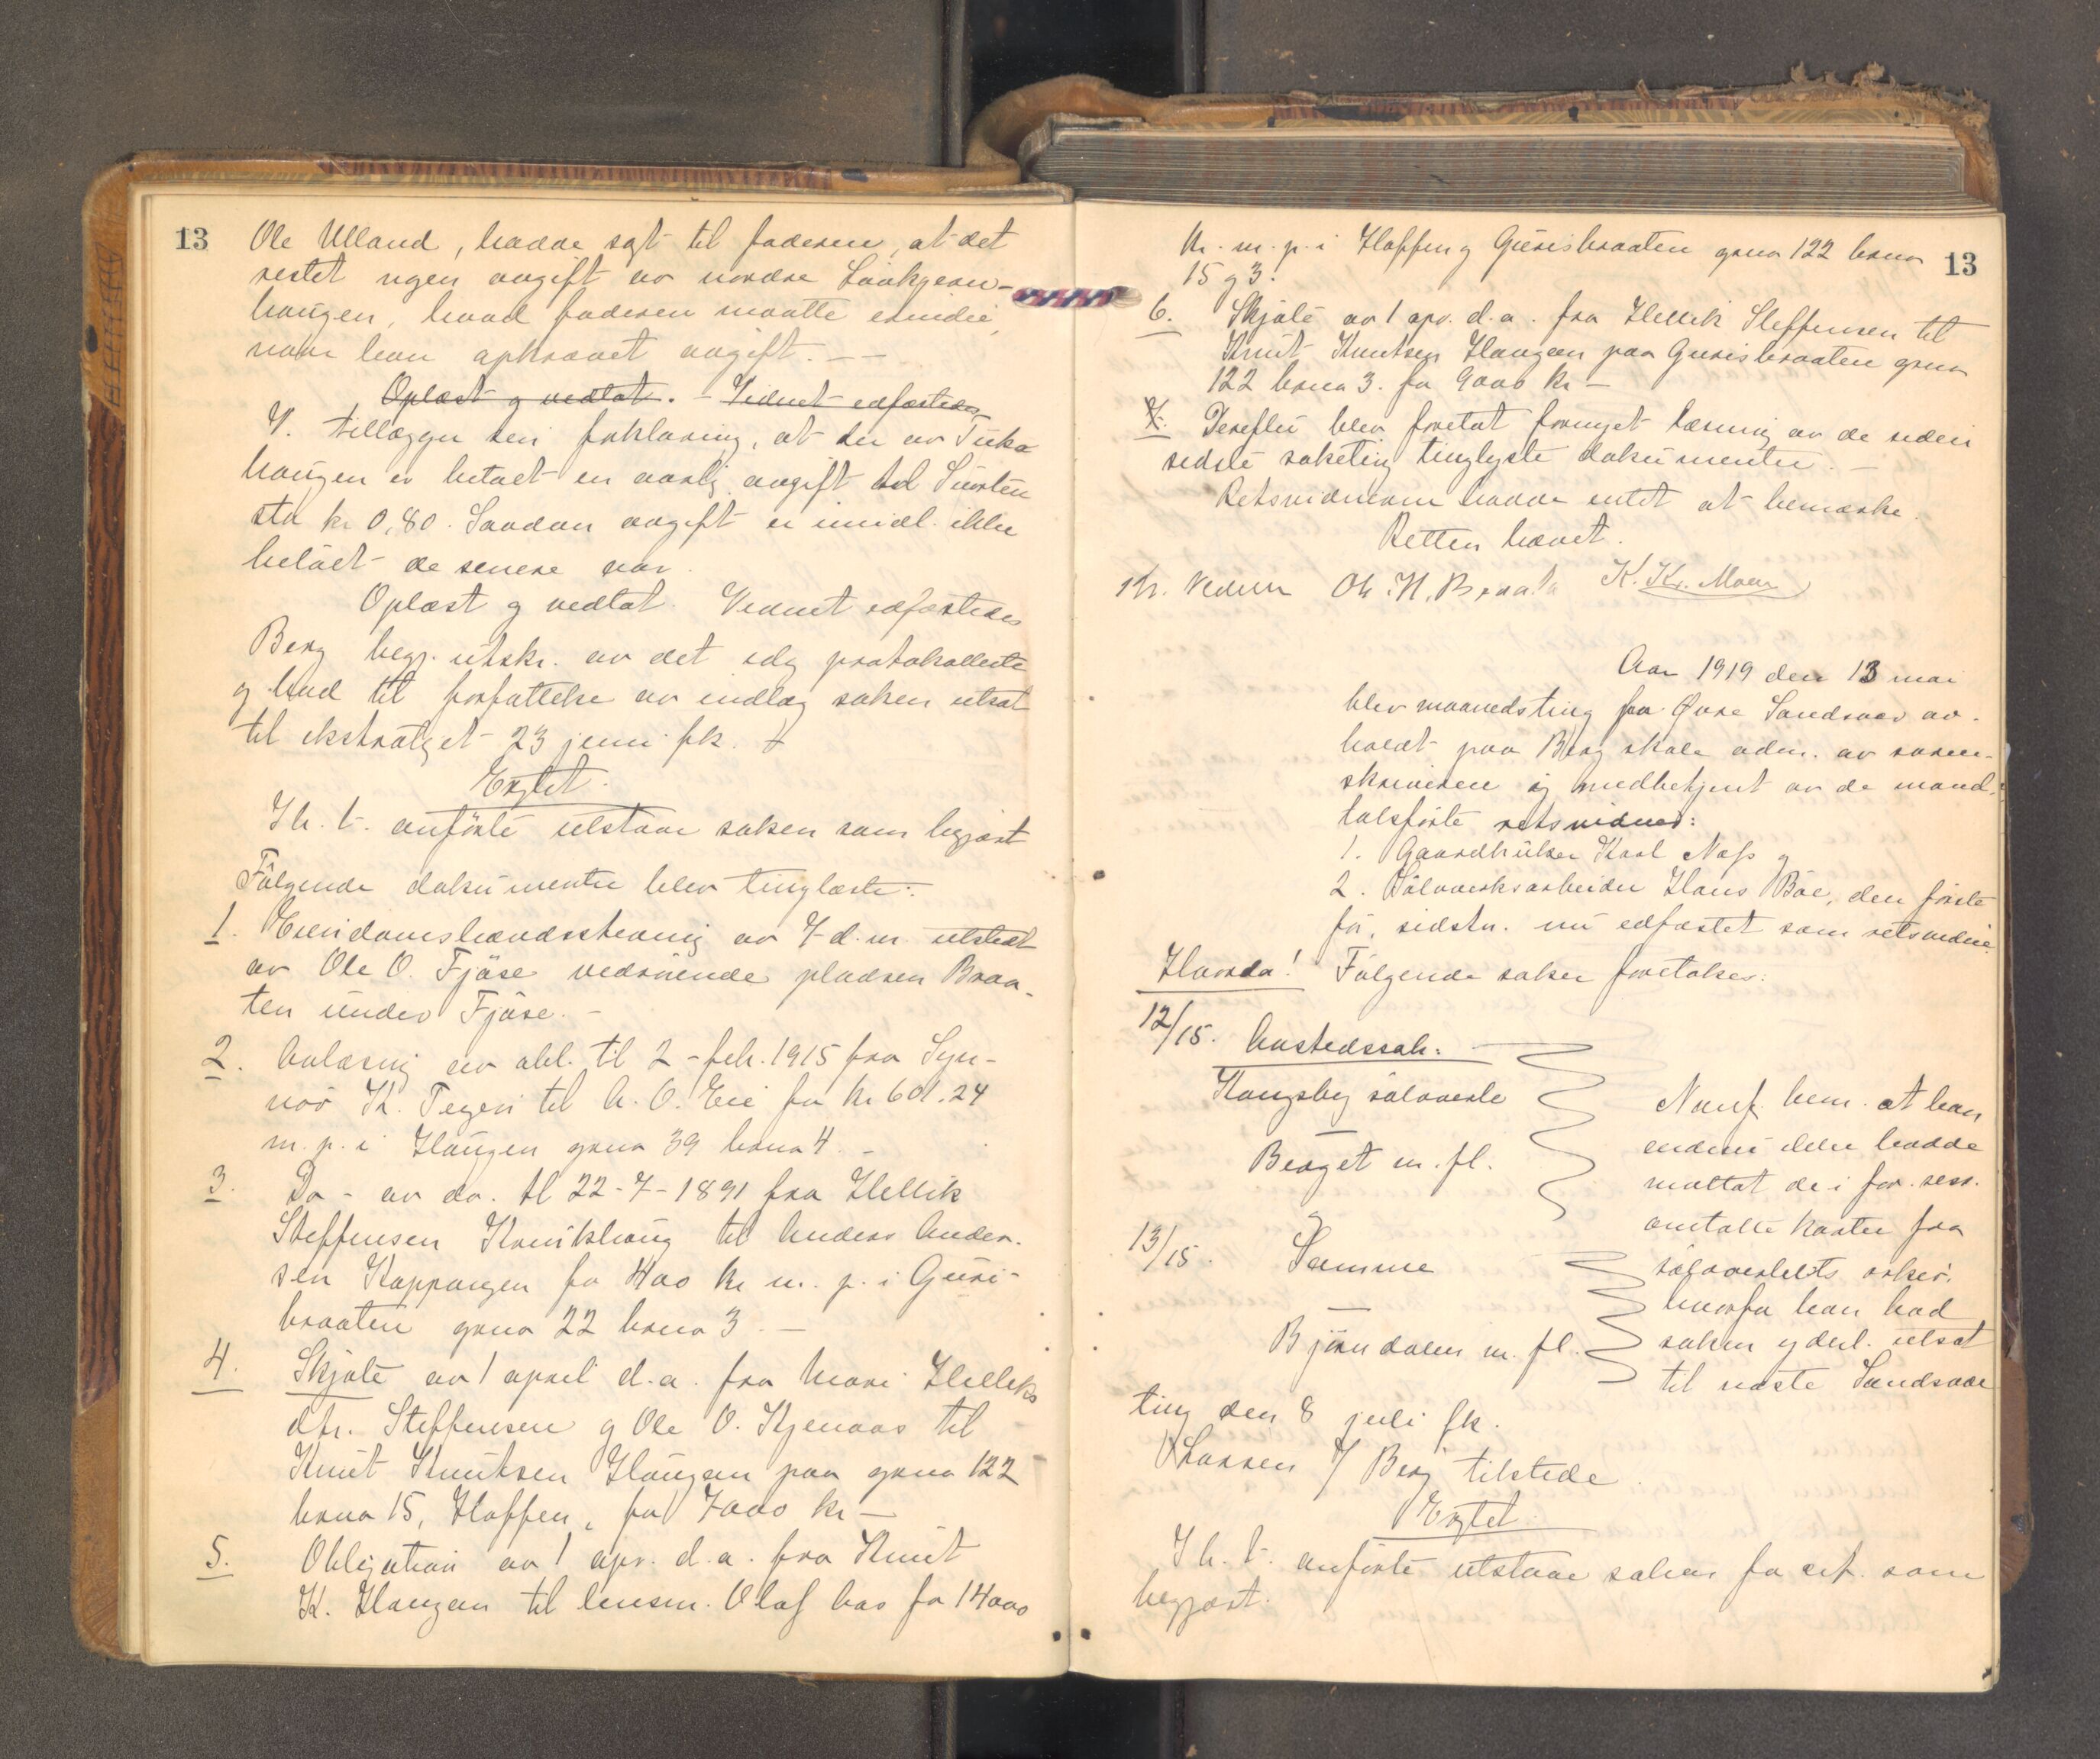 13
Ole Ulland, hadde sagt til faderen, at det
restet ngen avgift av nordre
haugen, hvad faderen maatte erindre,
naar han opkrævet avgift. — —
Oplæst og vedtat. – Vidnet edfæstedes
V. tillægger sin forklaring, at der av
haugen er betalt en aarlig avgift til
stø kr 0,80. Saadan avgift er imidl. ikke
betalt de senere aar.
Oplæst og vedtat. Vidnet edfæstedes
Berg begj. utskr. av det idg protokollerte
og bad til forfattelse av indlæg saken utsat
til ekstratget 23 juni fk. +
Eragtet.
I h. t. anførte utstaar saken som begjært
Følgende dokumenter blev tinglæste:
1. Eiendomshævdserhvervelse av 7 d.m. utstedt
av Ole O. Fjøse vedrørende pladsen Braa-
ten under Fjøse. –
2. Avlæsnig av obl. til 2 – feb. 1915 fra Syn-
nøv K. Teigen til A. O. Eie for kr 601.24
m. p. i Haugen gno 39 bno 4. –
3. Do – av do. tl 22 - 7 - 1891 fra Hellik
Steffensen Kravikhaug til Anders Ander-
sen Koppangen for 400 kr m. p. i Guri-
braaten gno 22 bno 3. —
4. Skjøte av 1 april d.a. fra Mari Helliks
dtr. Steffensen og Ole O. Kjennaas til
Knut Knutsen Haugan paa gno 122
bno 15, Hoffen, for 7000 kr —
5. Obligation av 1 apr. d.a. fra Knut
K. Haugan til lensm. Olaf Aas for 14000
13
kr. m. p. i Hoffen og Gurisbraaten gno 122 bno
15 og 3.
6. Skjøte av 1 apr. d.a. fra Hellik Steffensen til
Knut Knutsen Haugan paa Gurisbraaten gno
122 bno 3. for 9000 kr —
7. Derefter blev foretat fornyet læsning av de siden
sidste saketing tinglyste dokumenter. —
Retsvidnerne hadde intet at bemærke.
Retten hævet.
Chr. Vedum Ole H. Braata K. Kr. Moen
Aar 1919 den 13 mai
blev maanedsting for Øvre Sandsvær av-
holdt paa Berg skole adm. av soren-
skriveren og medbetjent av de mand-
talsførte retsvidner:
1. Gaardbruker Karl Næss og
2. Sølvverksarbeider Hans Bøe, den første
før, sidstn. nu edfæstet som retsvidne
Hvorda! Følgende saker foretokes:
12/15. Aastedssak:
Kongsberg sølvverk
—
Berget m. fl.
Nauf. bem. at han
endnu ikke hadde
mottat de i for. sess.
omtalte karter fra
sølvverkets arkiv,
hvorfor han bad
saken yderl. utsat
til næste Sandsvær
13/15. Samme
—
Bjørndalen m. fl.
ting den 8 juli fk.
Larsen f/ Berg tilstede.
Eragtet.
I h. t. anførte utstaar saken for ret. som
begjært.